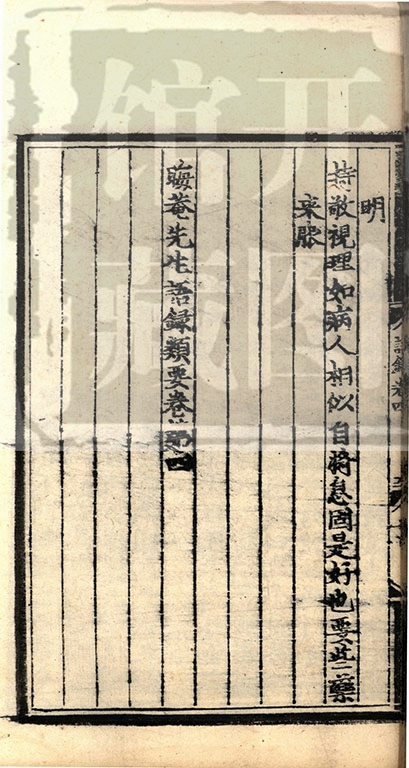 明
持敬視理如病人相似自將息固是好也要些藥
来服
晦菴先生語録類要卷第四
語錄卷四
开图
馆藏